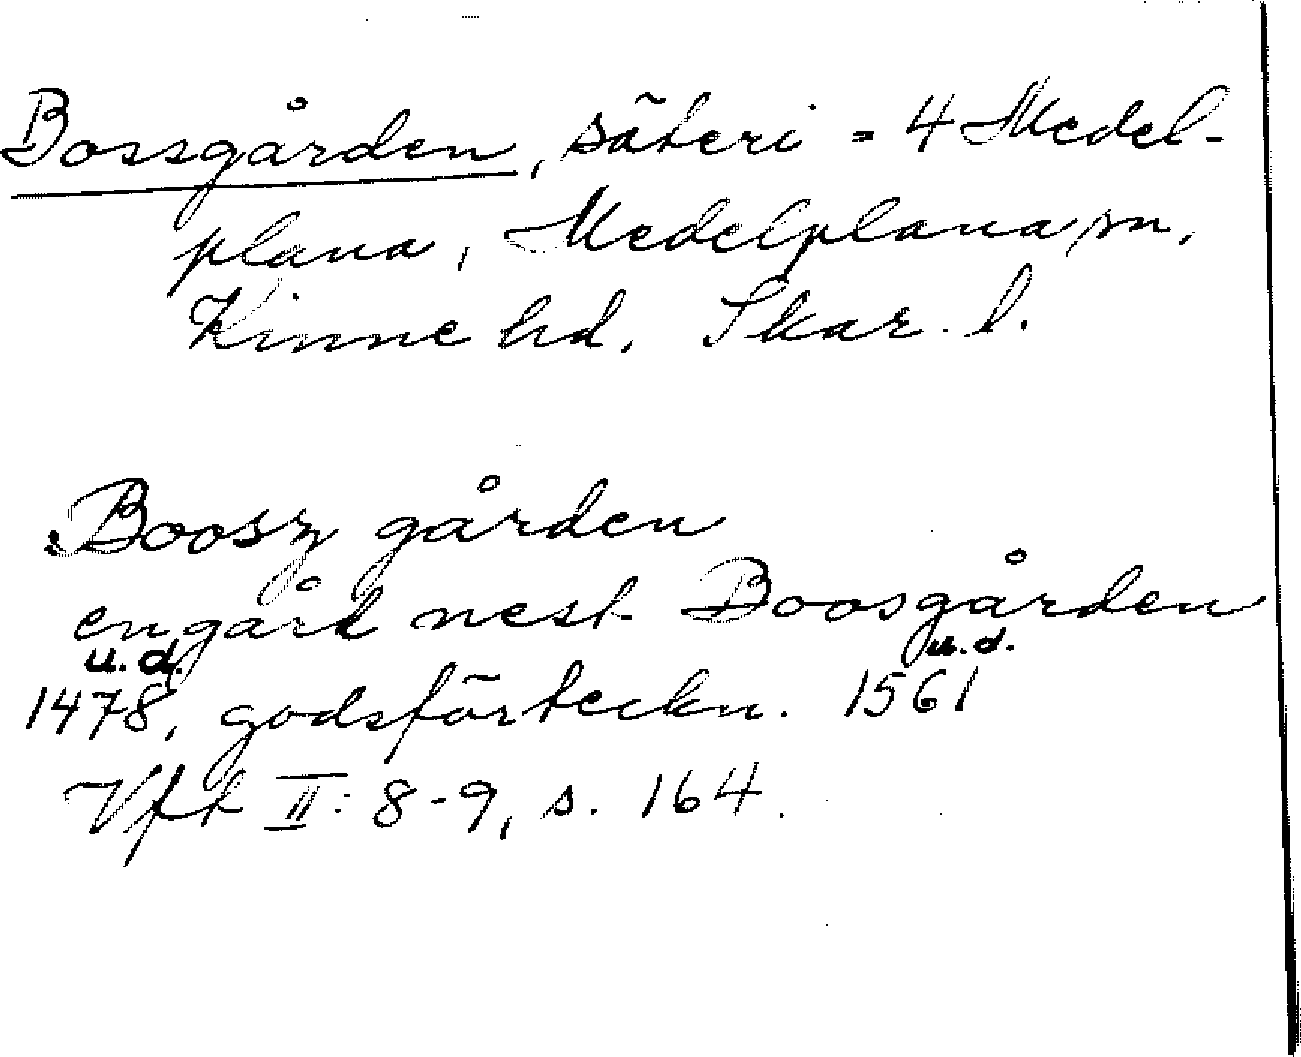 Bossgården, säteri = 4 Medel-
plana, Medelplana sn,
Kinne hd. Skar. l.
Boosz gården
en gård nest Boosgården
u.d. u.d.
1478, godsförteckn. 1561
Vft II: 8-9, s. 164.